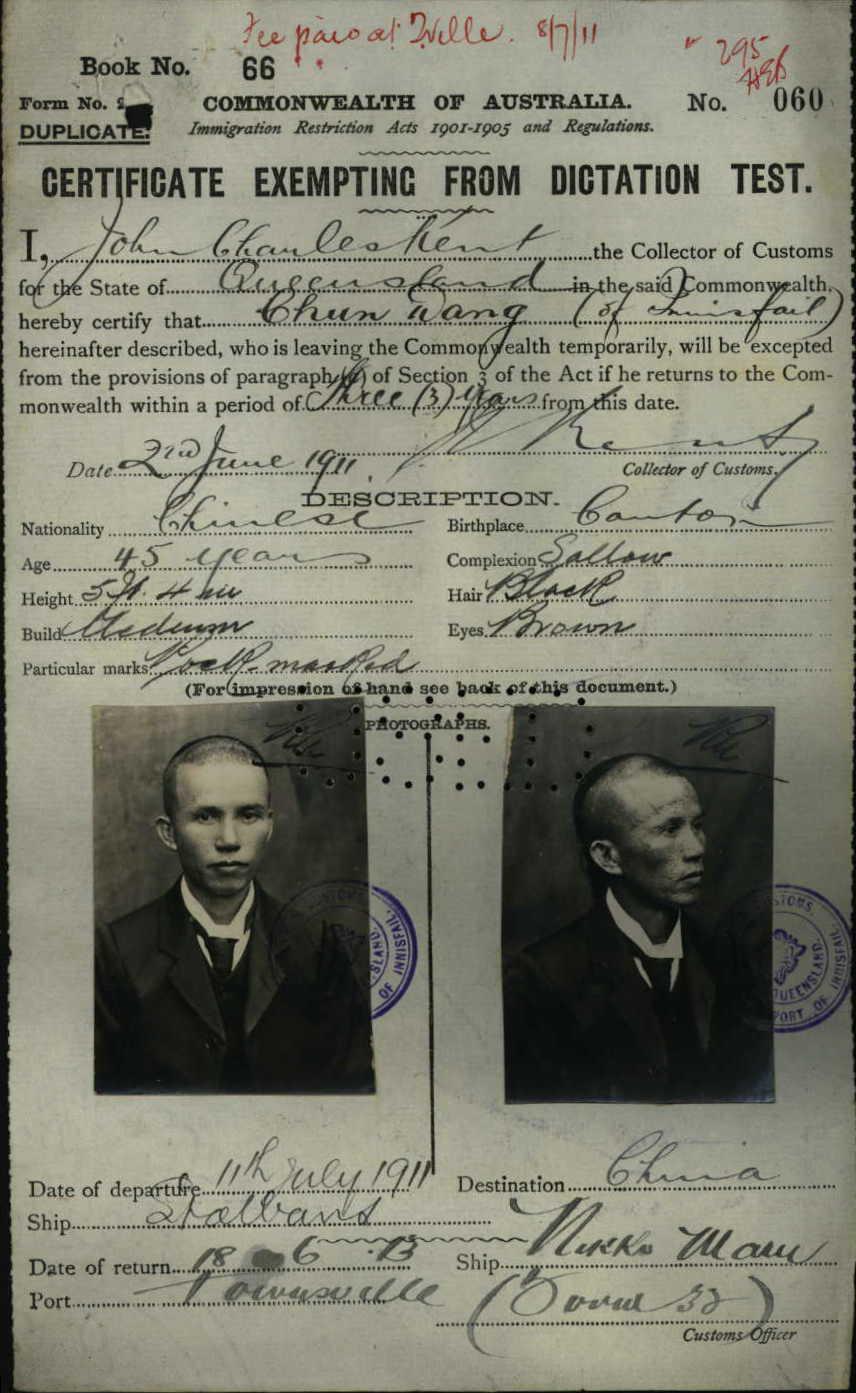 Fee paid at T'ville. 8/7/11
Book No. 66
295
Form No. 2
COMMONWEALTH OF AUSTRALIA. No. 060
DUPLICATE. Immigration Restriction Acts 1901-1905 and Regulations.
CERTIFICATE EXEMPTING FROM DICTATION TEST.
I, John Charles Kent the Collector of Customs
for the State of Queensland in the said Commonwealth,
hereby certify that Chun Wang (of Innisfail)
hereinafter described, who is leaving the Commonwealth temporarily, will be excepted
from the provisions of paragraph (a) of Section 3 of the Act if he returns to the Com-
monwealth within a period of Three (3) Years from this date.
Date 2nd June 1911. Kent
Collector of Customs.
DESCRIPTION.
Nationality Chinese Birthplace Canton
Age 45 years Complexion Sallow
Height 5 ft. 4 in Hair Black
Build Medium Eyes Brown
Particular marks Pock marked
(For impression of hand see back of this document.)
PHOTOGRAPHS.
CUSTOMS QUEENSLAND. PORT OF INNISFAIL.
CUSTOMS QUEENSLAND. PORT OF INNISFAIL.
Date of departure 11th July 1911 Destination China
Ship St Albans
Date of return 18 6 13 Ship Nikko Maru
Port Townsville
Customs Officer